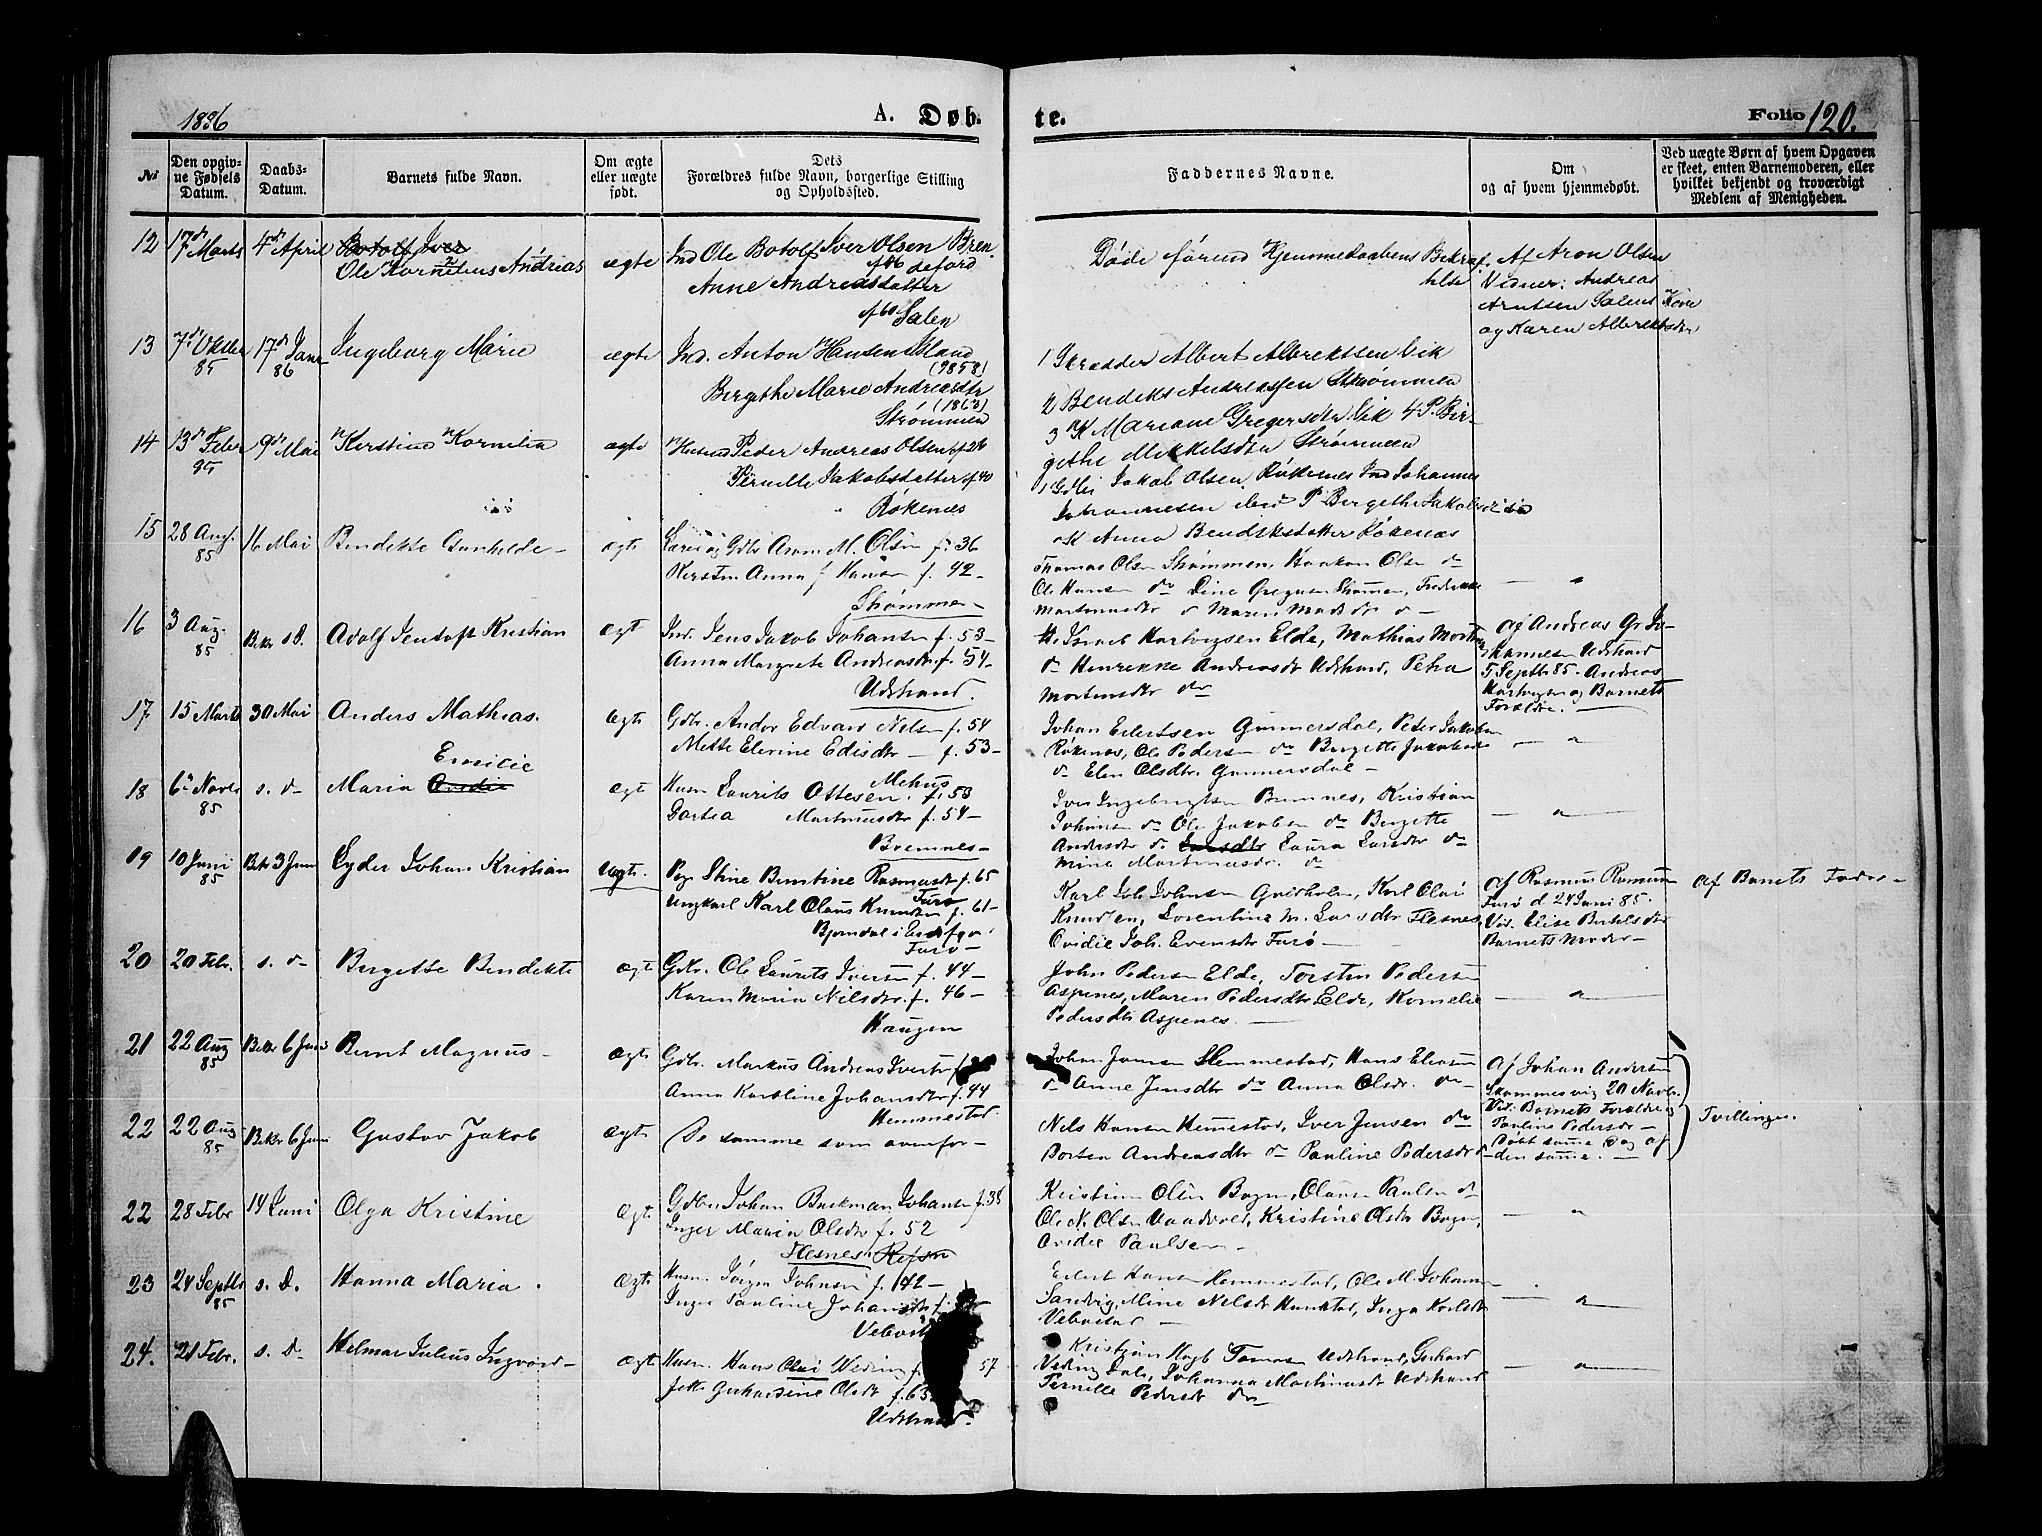 1886
A. Døb. te. Folio 120.
No
Den opgivne Fødsels Datum.
Daabs-Datum.
Barnets fulde Navn.
Om ægte eller uægte født.
Dets Forældres fulde Navn, borgerlige Stilling og Opholdssted.
Faddernes Navne.
Om og af hvem hjemmedøbt.
Ved uægte Børn af hvem Opgaven er skeet, enten Barnemoderen, eller hvilket bekjendt og troværdigt Medlem af Menigheden.
12 17de Marts 4de April Botolf Iver
Ole Kornelius Andreas ægte Ind Ole Botolf Iver Olsen Brendeford
Anne Andreasdatter
f 60 Salen
Døde førend Hjemmedaabens Bekræftelse
Af Aron Olsen
Vidner: Andreas
Arntsen Salens Kone
og Karen Albrektsdtr
13 7de Oktbr 85 17de Janr 86 Ingeborg Marie ægte Ind. Anton Hansen
Bergethe Marie Andreasdtr
(1863)
Strømmen
1 Skredder Albert Albrektsen Vik
2 Bendiks Andreassen Strømmen
3 K Mariane Gregersdtr Vik 4 P. Birgethe Mikkelsdtr Strømmen
14 13de Febr 85 9de Mai Kirstine Kornelia ægte Husmd Peder Andreas Olsen f 26
Pernille Jakobsdatter f 40
Røkenes
1 Gdbr Jakob Olsen Røkenes Ind Johannes
Johannesen ibid P Bergethe Jakobsdtr
K Anna Bendiksdatter Røkenæs
15 28 Aug. 85 16 Mai Bendikte Gunhilde ægt Gdbr Aron M. Olsen f. 36
Kirsten Anna Hansen f. 42
Strømmen
Thomas Olsen Strømmen, Haakon Olsen do
Ole Hansen do Dina Gregersen Strømmen, Fredrikke
Martinusdtr do Maren Madsdtr do
16 3 Aug. 85 Bekr s.D. Adolf Jentoft Kristian ægt Ind. Jens Jakob Johansen f. 53
Anna Margrete Andreasdtr f. 54
Udstrand.
Hartvigsen Elde, Mathias
do Henrikke Andreasdtr Udstrand, Petra
Mortensdtr do
af Andreas Gr. Johannesen Udstrand
5 Septbr 85. Andreas
Hartvigsen og Barnets
Forældre.
17 15 Marts 30 Mai Anders Mathias. ægt Gdbr. Andor Edvard Nilsen f. 54
Mette Elerine Edisdtr f. 53
Mehus
Johan Eilertsen Gunnersdal, Peter Jakobsen
Røkenes, Ole Pedersen do Birgitte Jakobsdtr
do Elen Olsdtr. Gunnersdal
18 6te Novbr 85 s. d. Maria Emilie ægt Husm Laurits Ottesen f. 53
Dortea Martinusdtr f. 54
Bremnes
Iver Ingebrigtsen Bremnes, Kristian
Johansen do Ole Jakobsen do Birgitte
Andersdtr do Larsdtr Laura Larsdtr do
Mina Martinusdtr. do
19 10 Juni 85 Bekr 3 Juni Lyder Johan Kristian uægt. Pige Stine Bentine Rasmusdtr f. 65
Furø
Ungkarl Karl Olaus Knudsen f. 61
Karl Joh. Johnsen Grøtholm, Karl Olai
Knudsen, Lorentine M. Larsdtr Flesnes,
Ovidie Joh. Evensdtr Furø
af Rasmus Rasmussen
Furø d 24 Juni 85.
Vid. Elise Bertelsdtr
Barnets Moder
Af Barnets Fader
20 20 Febr. s. d. Birgitte Bendikte ægt Gdbr. Ole Laurits Iversen f. 44
Karen Maria Nilsdtr. f. 46
Haugen
John Pedersen Elde, Torsten Pedersen
Aspenes, Maren Pedersdtr Elde, Kornelie
Pedersdtr Aspenes.
21 22 Aug 85 Bekr 6 Juni Bernt Magnus ægt Gdbr. Markus Andreas Iversen f.
Anna Karoline Johansdtr f. 44
Hemmestad
Johan Jensen Hemmestad, Hans Eliasen
do Anne Jensdtr do Anna Olsdtr. do
af Johan Andersen
20 Novbr.
Vid. Barnets Forældre og
Pauline Pedersdtr
22 22 Aug 85 Bekr 6 Juni Gustav Jakob ægt De samme som ovenfor
Nils Hansen Hemmestad, Iver Jensen do
Dortea Andreasdtr do Pauline Pedersdtr do
Døbt samme Dag af
den samme.
Tvillinger.
22 28 Febr 14 Juni Olga Kristine ægt. Gdbr Johan Buckman Johansen f. 38
Inger Maria Olsdtr f. 52
Flesnes
Kristian Olsen Bogen, Olaus Paulsen do
Ole N. Olsen Vaadvold, Kristine Olsdtr Bogen,
Ovidie Paulsen
23 24 Septbr 85 s. D. Hanna Maria ægt Husm. Jørgen Johnsen f. 42
Inger Pauline Johansdtr
Eilert Hansen Hemmestad, Ole M. Johansen
Sandvig, Mine Nilsdtr Hunstad, Inga Karlsdtr
Vebostad
24. 21 Febr. s. D. Helmar Julius Ingvard ægt Husm. Hans Olai Weding f. 57
Jette Gerhardine Olsdtr f. 63
Udstrand
Kristian Høgb Tomasen Udstrand, Gerhard
Veding Dale, Johanna Martinusdtr Udstrand
Pernille Pedersdtr do